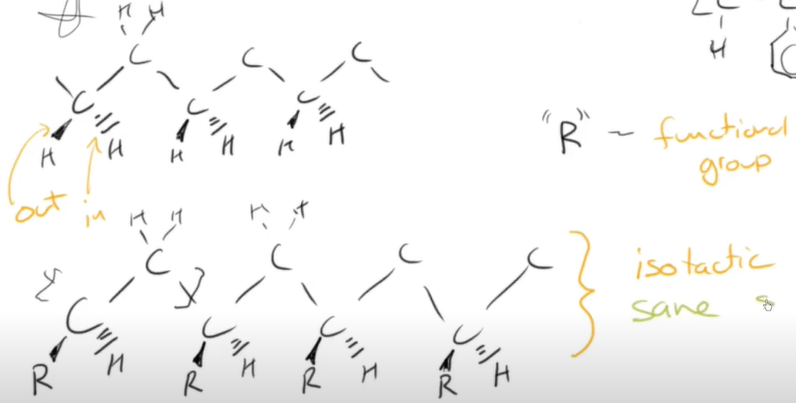 H H
C C C
C C C
H H H H H H
H
"R" ~ functional
group
out in
H H H H
C C C C
C C C C
R H R H R H R H
isotactic
same